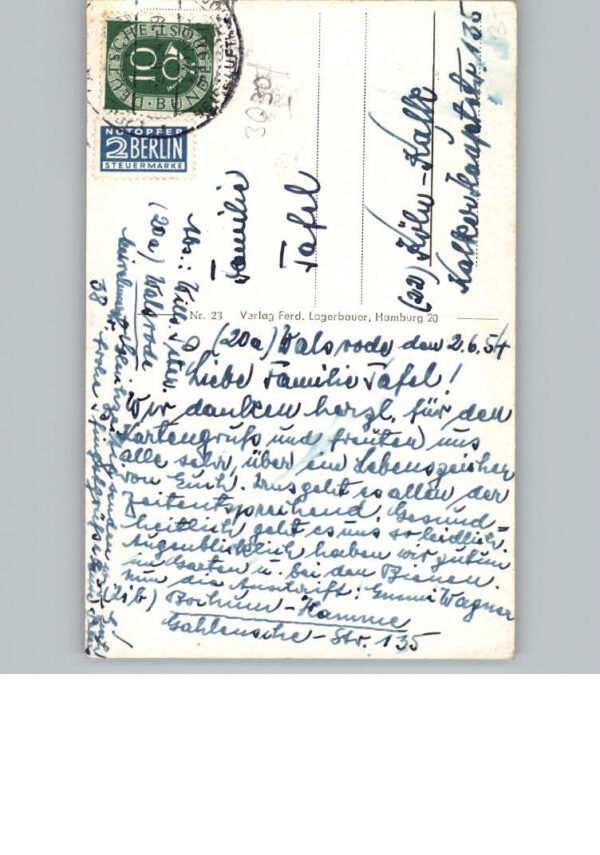 DEUTSCHE BUNDESPOST
10
NOTOPFER
2 BERLIN
STEUERMARKE
3030
Familie
Tafel
(22) Köln-Kalk
Kalker Hauptstr. 135
Abs.:
(20a) Walsrode
38
Nr. 23 Verlag Ferd. Lagerbauer, Hamburg 20
(20a) Walsrode den 2.6.54
Liebe Familie Tafel!
Wir danken herzl. für den
Kartengruß und freuten uns
alle sehr, über ein Lebenszeichen
von Euch. Uns geht es allen der
Zeit entsprechend. Gesund-
heitlich geht es uns so leidlich.
Augenblicklich haben wir zu tun
im Garten u. bei den Bienen.
Nun die Anschrift: Emmi Wagner
(21b) Bochum-Hamme
Gahlensche-Str. 135